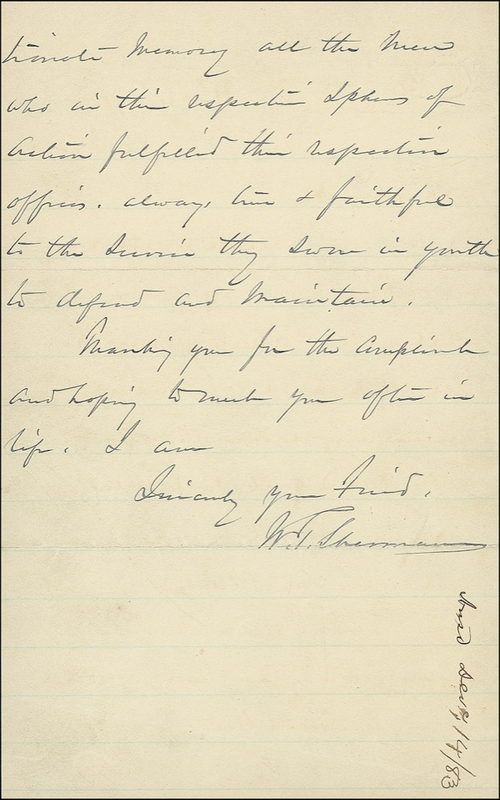 tionate Memory all the men
who in their respective Spheres of
Action fulfilled their respective
offices. always, true & faithful
to the Service they swore in youth
to defend and maintain.
Thanking you for the compliment
and hoping to meet you often in
life. I am
Sincerely your friend,
W. T. Sherman
Ansd Dec 14/83